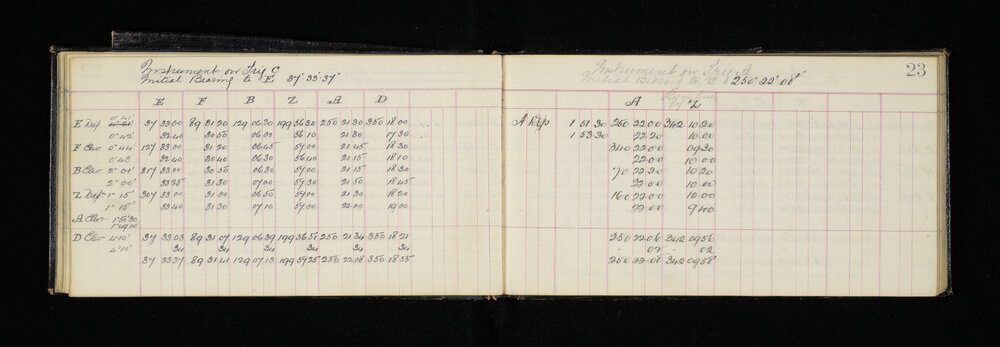 Instrument on Trig C
Initial Bearing to E 37° 33' 37"
E F B Z A D
E Dep 37 33.00 89 31 20 129 06.30 199 56 30 250 21 30 350 18.00
0° 42' 32.40 30 50 06.00 56 10 21.30 17 30
F Elev 0° 44' 127 33.00 31.20 06 45 57 00 21 45 18 30
0° 43 32.40 30 40 06.30 56 40 21 15 18 10
B Elev 2° 01' 217 33.00 30 50 06.30 57.00 21 15 18.30
2° 00' 31 30 07.00 57 30 21 50 18 45
Z Dep 1° 15' 307 33.00 31.00 06 50 57.00 21 30 18.20
1° 15" 33.40 31 30 07 10 57.00 22.00 19.00
A Elev 1° 50' 30
D Elev 4° 10' 37 33 03 89 31 07 129 06 39 199 56 51 250 21 34 350 18 21
4° 10' 34 34 34 34 34 34
37 33 37 89 31 41 129 07 13 199 57 25 250 22 08 350 18 55
23
Instrument on Trig A
Initial Bearing to C 250° 22' 08"
A Z
A Dep 1 51 30 250 22.00 342 10 20
1 53 30 22.20 10 00
340 22.00 09 30
22.00 10 00
70 22.20 10 20
22.00 10 00
160 22.00 10.00
22.00 9 40
250 22 06 342 09 56
02 02
250 22 08 342 09 58